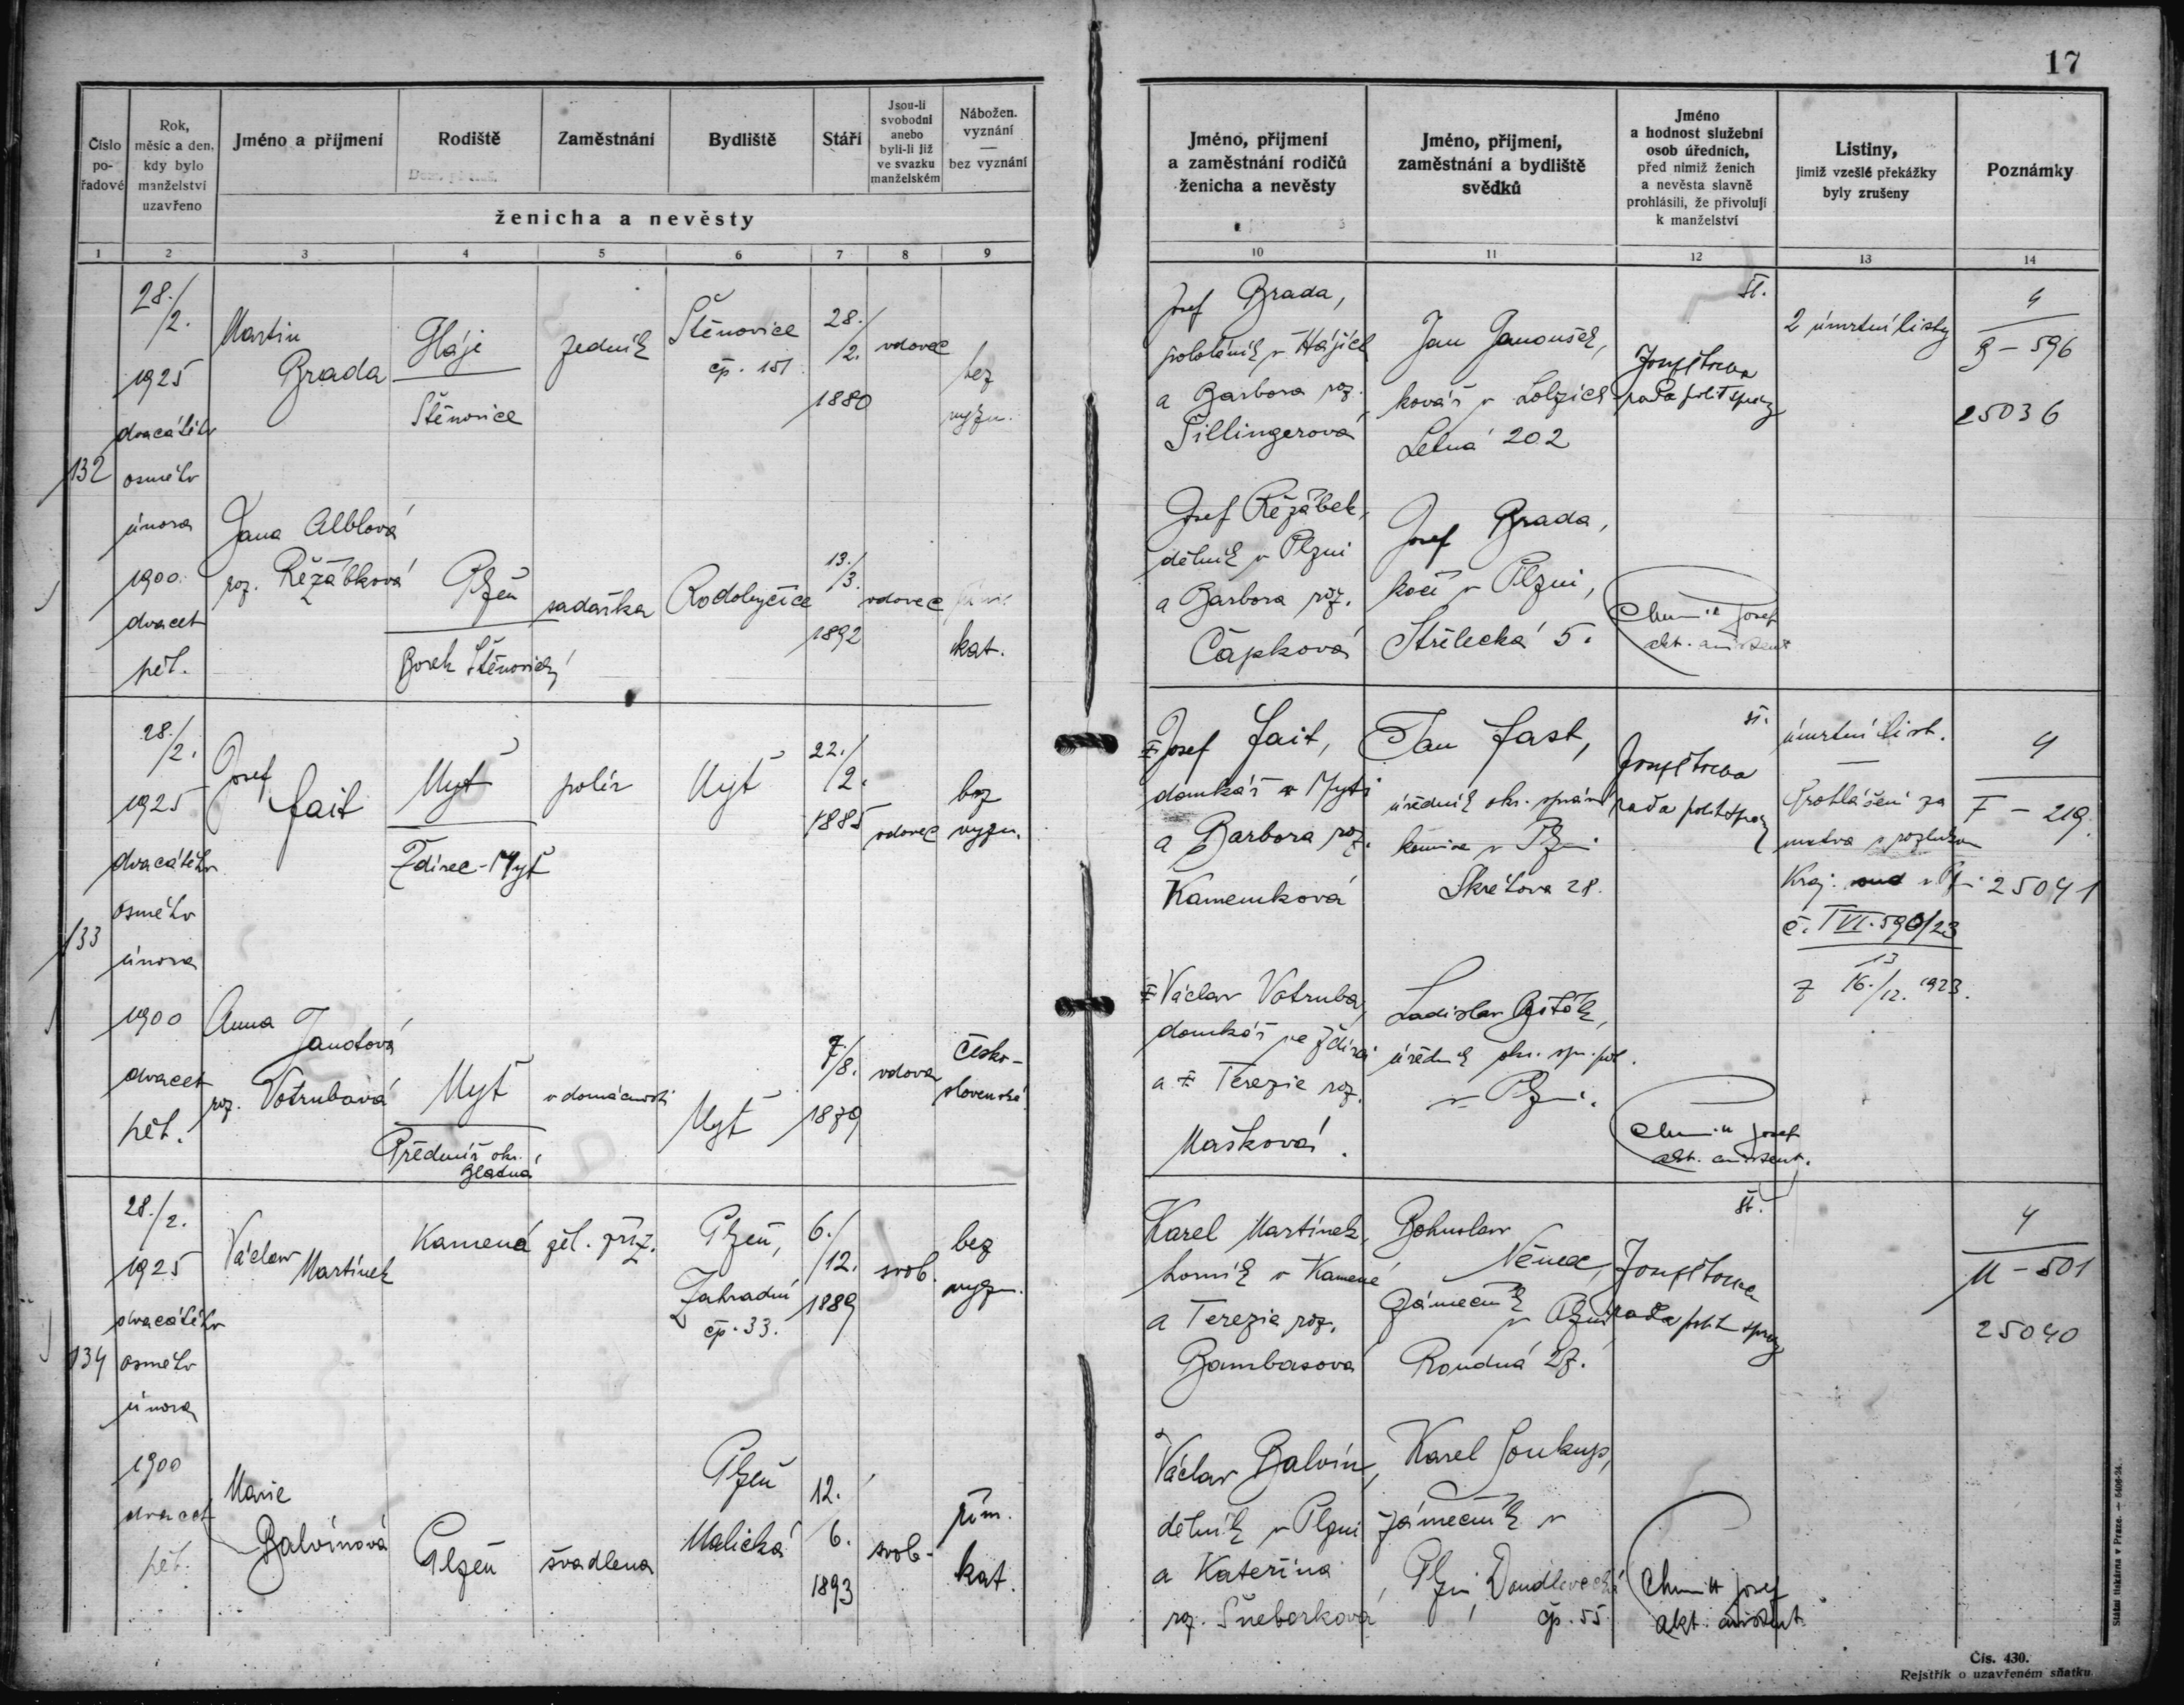 17
Číslo
po-
řadové
Rok,
měsíc a den,
kdy bylo
manželství
uzavřeno
Jméno a příjmení
Rodiště
Zaměstnání
Bydliště
Stáří
Jsou-li
svobodni
anebo
byli-li již
ve svazku
manželském
Nábožen.
vyznání
—
bez vyznání
ženicha a nevěsty
Jméno, příjmení
a zaměstnání rodičů
ženicha a nevěsty
Jméno, příjmení,
zaměstnání a bydliště
svědků
Jméno
a hodnost služební
osob úředních,
před nimiž ženich
a nevěsta slavně
prohlásili, že přivolují
k manželství
Listiny,
jimiž vzešlé překážky
byly zrušeny
Poznámky
1 2 3 4 5 6 7 8 9 10 11 12 13 14
132
28./2.
1925
dvacátého
osmého
února
1900
dvacet
pět.
Martin
Brada
Háje
Štěnovice
zedník
Štěnovice
čp. 151
28./2.
1880
vdovec
bez
vyzn.
Josef Brada,
pololáník v Hájích
a Barbora roz.
Šillingerová
Jan Janoušek,
kovář v Lobzích
Letná 202
rada polit. správy
2 úmrtní listy
4
B – 596
25036
Jana Alblová
roz. Řežábková
Plzeň
Borek Štěnovický
sadařka
Radobyčice
13./3.
1892
vdovec
kat.
Josef Řežábek,
dělník v Plzni
a Barbora roz.
Čápková
Josef Brada,
kočí v Plzni,
Střelecká 5.
Josef
akt. assistent
133
28./2.
1925
dvacátého
osmého
února
1900
dvacet
pět.
Josef
Fait
Mýt
Ždírec-Mýt
polír
Mýt
22./2.
1885
vdovec
bez
vyzn.
Josef Fait,
domkář v Mýti
a Barbora roz.
Kameníková
Jan Fast,
úředník okr. správní
komise v Plzni
Škrétova 28.
rada polit. správy
úmrtní list.
Prohlášení za
mrtva s rozlukou
Kraj. soud v Plzni
č. T VI. 590/23
13
z 16./12. 1923.
4
F – 219.
25041
Anna
Jandová
roz. Votrubová
Mýt
Předmíř okr.
Blatná
v domácnosti
Mýt
7./8.
1879
vdova
česko-
slovenské
Václav Votruba,
domkář ve Ždírci
a Terezie roz.
Mašková.
Ladislav
úředník okr. spr. pol.
v Plzni.
Josef
akt. assistent.
134
28./2.
1925
dvacátého
osmého
února
1900
dvacet
pět.
Václav
Martínek
Kamená
žel. zříz.
Plzeň,
Zahradní
čp. 33.
6./12.
1889
svob.
bez
vyzn.
Karel Martínek,
horník v Kamené
a Terezie roz.
Bambasová
Bohuslav
Němec,
zámečník
v Plzni
Roudná 27.
rada polit. správy
4
M – 501
25040
Marie
Balvínová
Plzeň
švadlena
Plzeň
Malická
12.
6.
1893
svob.
řím.
kat.
Václav Balvín,
dělník v Plzni
a Kateřina
roz. Šneborková
Karel Soukup,
zámečník v
Plzni, Doudlevecká
čp. 55.
Josef
akt. assistent
Čís. 430.
Rejstřík o uzavřeném sňatku